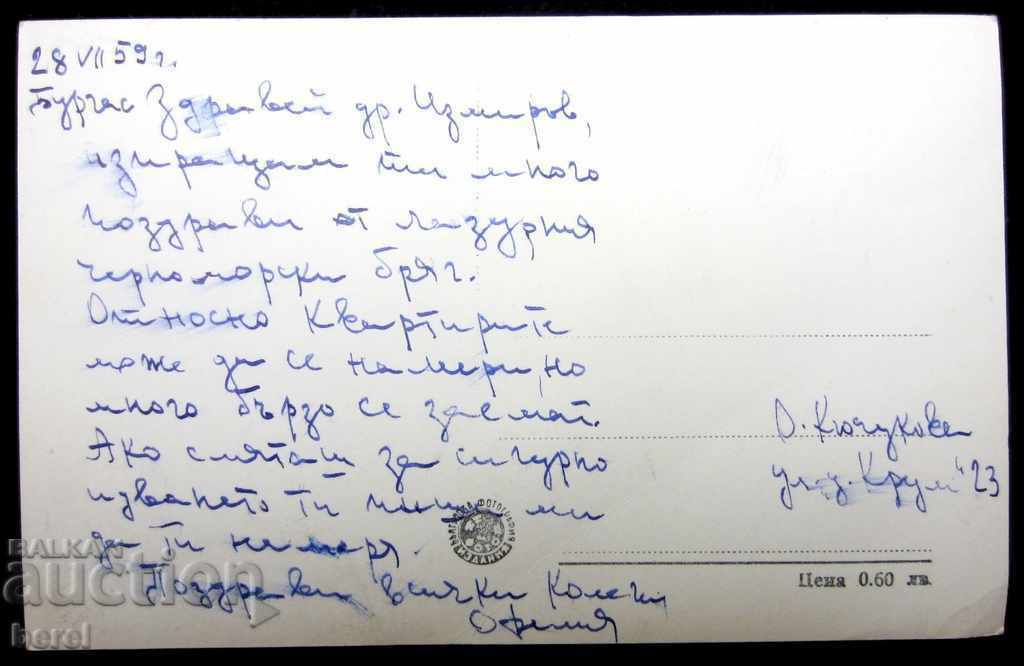 28 VII 59 г.
Бургас Здравей др. Измиров,
изпращам ти много
поздрави от лазурния
черноморски бряг.
Относно квартирите
може да се намери, но
много бързо се заемат.
Ако смяташ за сигурно
идването ти пиши ми
да ти намеря.
Поздрави всички колеги
Офелия
О. Кючукова
ул. "Ц. Крум" 23
БЪЛГАРСКА ФОТОГРАФИЯ
Цена 0.60 лв.
BALKAN
auction
berel